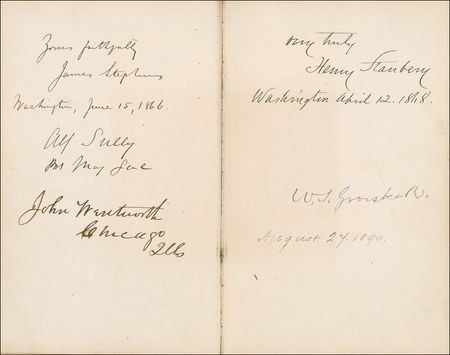 Yours faithfully
James Stephens
Washington, June 15, 1866.
Alf Sully
Bvt Maj Genl
John Wentworth
Chicago
Ills
very truly
Henry Stanbery
Washington April 12. 1868.
W. S. Groesbeck.
August 27. 1890.